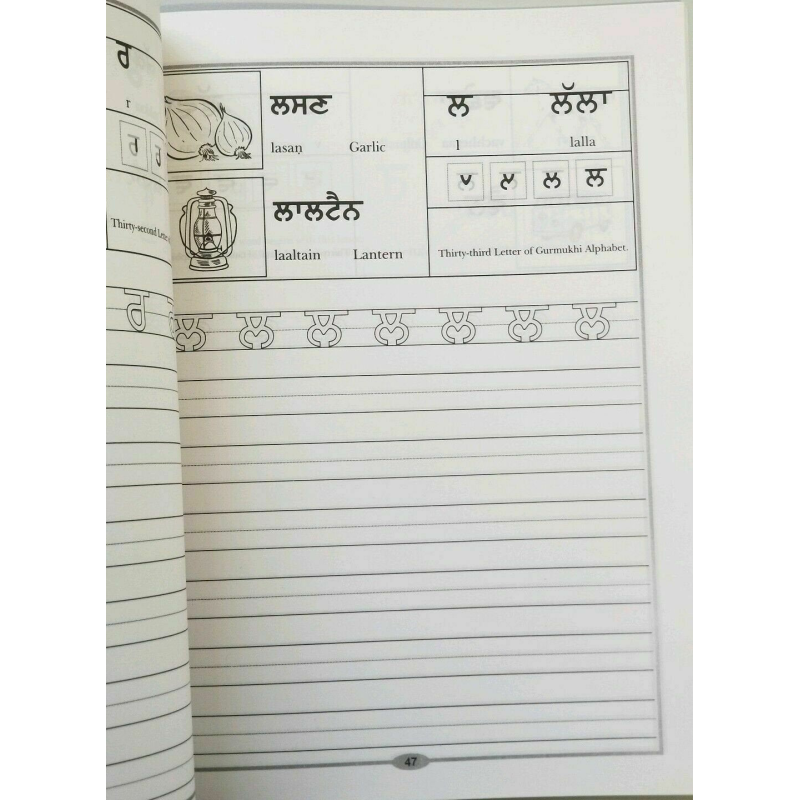 ਰ
r
Thirty-second Letter
ਰ
ਲਸਣ
lasaṇ Garlic
ਲਾਲਟੈਨ
laaltain Lantern
ਲ ਲੱਲਾ
l lalla
ਲ
Thirty-third Letter of Gurmukhi Alphabet.
ਲ ਲ ਲ ਲ ਲ ਲ ਲ
47